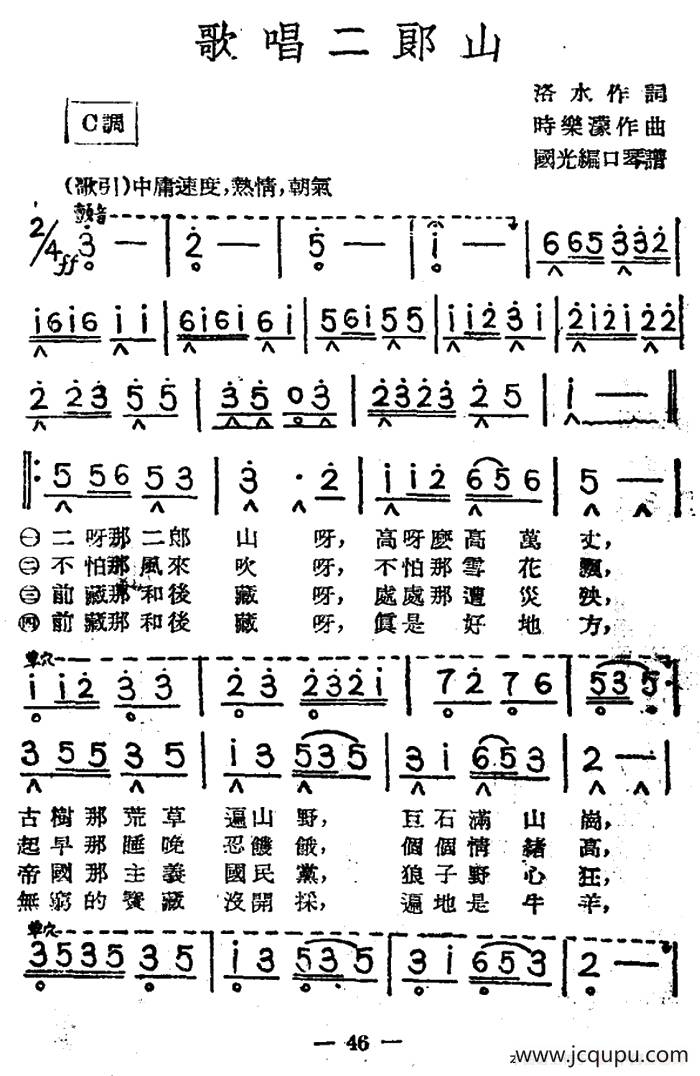 歌唱二郎山
洛水作詞
C調
時樂濛作曲
國光編口琴譜
(歌引)中庸速度,熱情,朝氣
顫音
2/4 ff 3 — | 2 — | 5 — | i — | 6 665 332 |
i6i6 i i | 6i6i 6 i | 5 6i 55 | i i2 3 i | 2i2i 22 |
2 23 5 5 | 3 5 0 3 | 2323 2 5 | i — ‖
‖: 5 56 53 | 3 · 2 | i i2 65 6 | 5 — |
㊀二呀那二郎 山 呀, 高呀麽高 萬 丈,
㊁不怕那風來 吹 呀, 不怕那雪 花 飄,
㊂前藏那和後 藏 呀, 處處那遭 災 殃,
㊃前藏那和後 藏 呀, 眞是 好 地 方,
單穴
i i2 3 3 | 2 3 232i | 7 2 7 6 | 53 5 :
3 55 3 5 | i 3 53 5 | 3 i 65 3 | 2 — |
古樹那荒草 遍山野, 巨石滿山崗,
起早那睡晚 忍饑餓, 個個情緒高,
帝國那主義 國民黨, 狼子野心狂,
無窮的寶藏 沒開採, 遍地是牛羊,
單穴
3535 3 5 | i 3 53 5 | 3 i 65 3 | 2 — |
— 46 —
www.jcqupu.com